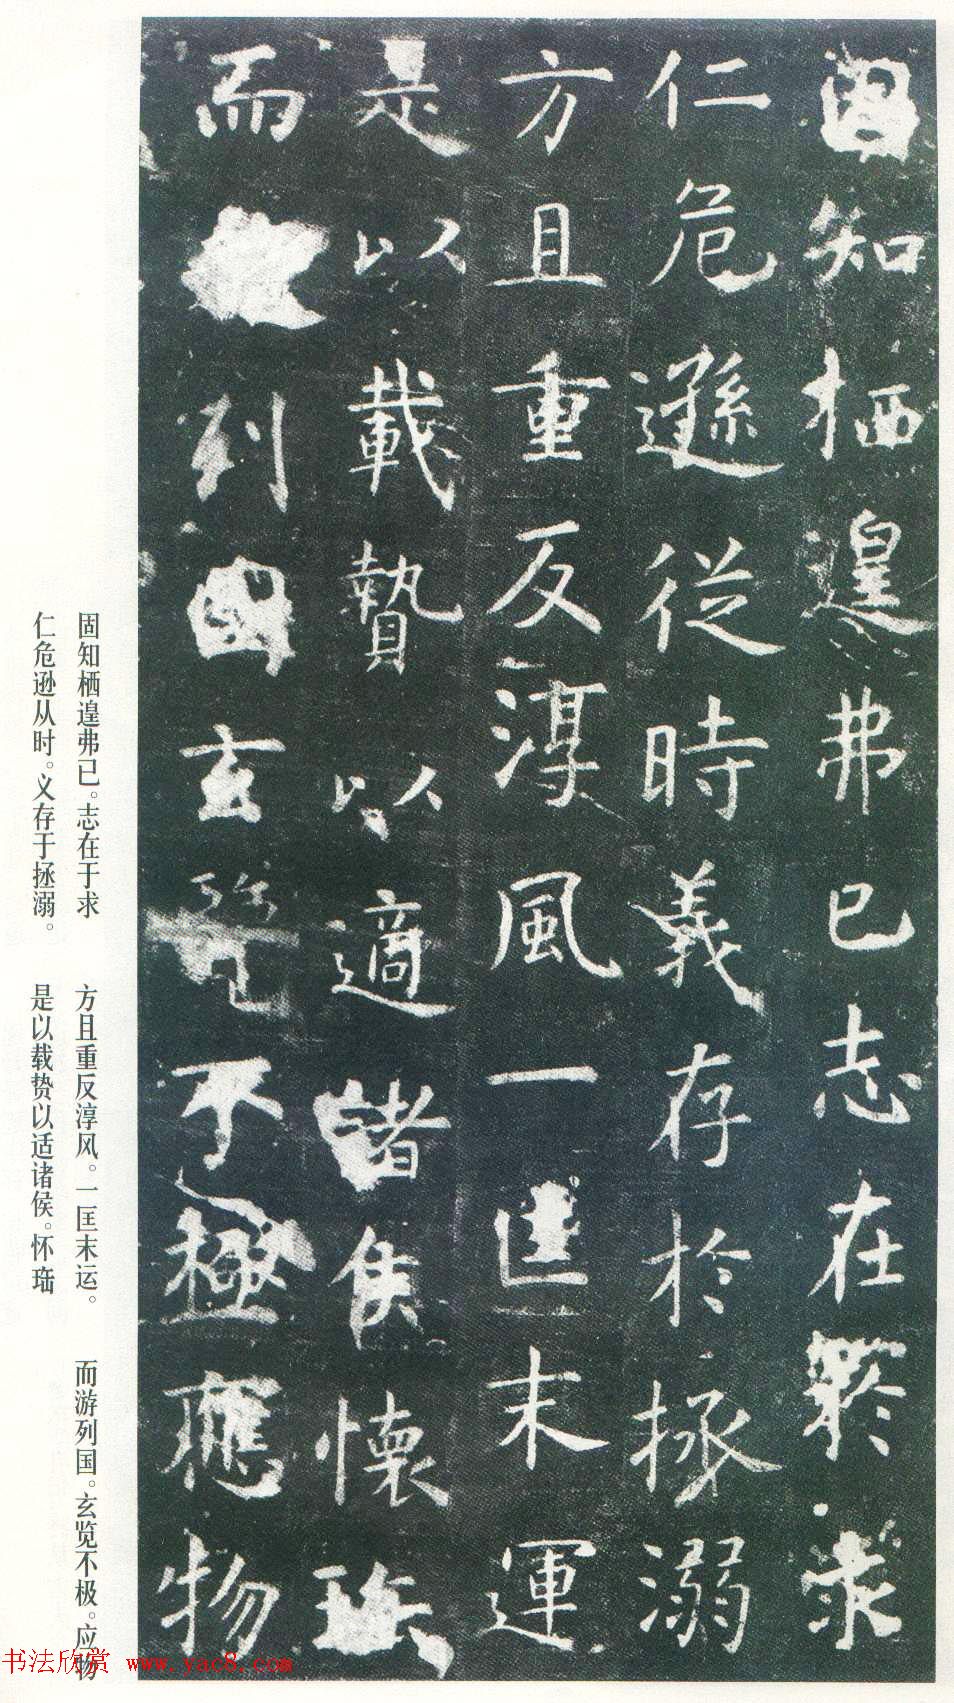 固知栖遑弗已志在於求
仁危遜從時義存於拯溺
方且重反淳風一匡末運
是以載贄以適諸侯懷珤
而列國玄覽不極應物
固知栖遑弗已。志在于求
仁危逊从时。义存于拯溺。
方且重反淳风。一匡末运。
是以载贽以适诸侯。怀珤
而游列国。玄览不极。应物
书法欣赏 www.yac8.com